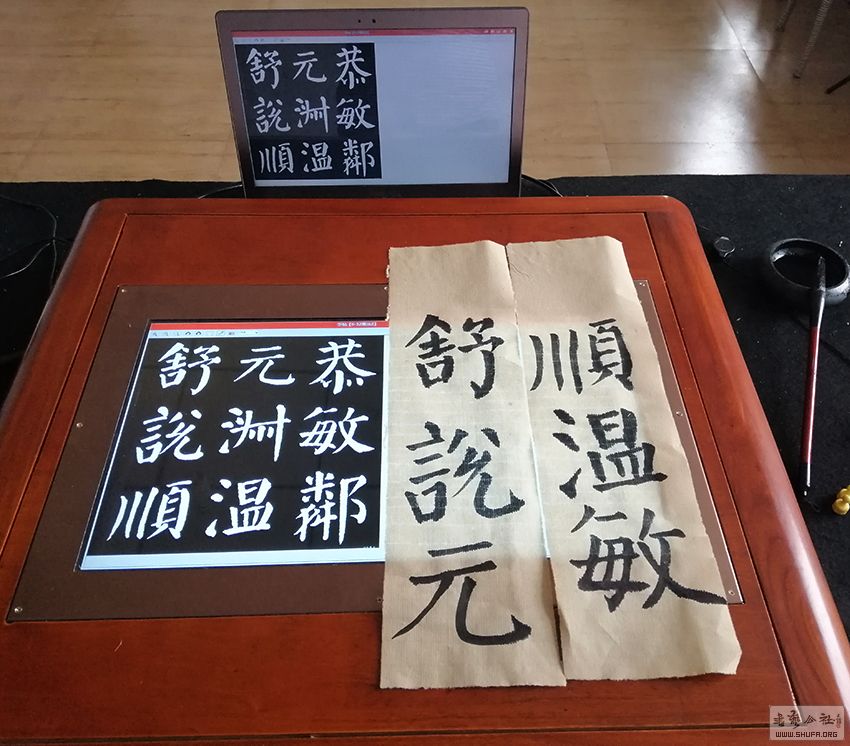 舒元恭
説敏
順温鄰
舒元恭
説敏
順温鄰
舒説元
順温敏
WWW.SHUFA.ORG